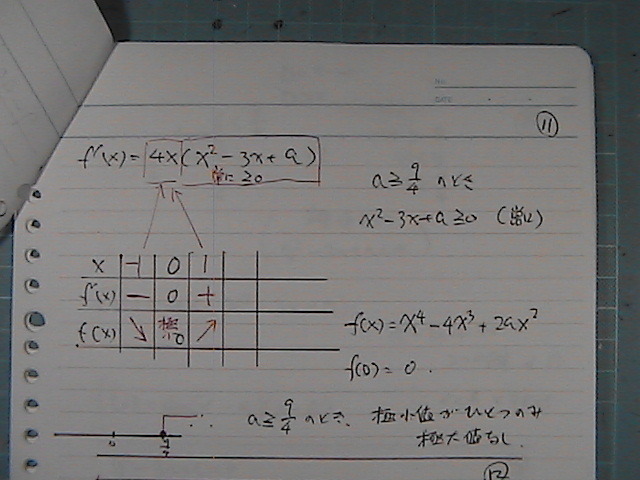 No.
DATE
⑪
f'(x) = 4x(x² - 3x + a)
常に ≥ 0
a ≥ 9/4 のとき
x² - 3x + a ≥ 0 (常に)
x -1 0 1
f'(x) - 0 +
f(x) ↘ 極小 0 ↗
f(x) = x⁴ - 4x³ + 2ax²
f(0) = 0.
a ≥ 9/4 のとき、極小値がひとつのみ
極大値なし.
0 9/4
⑫